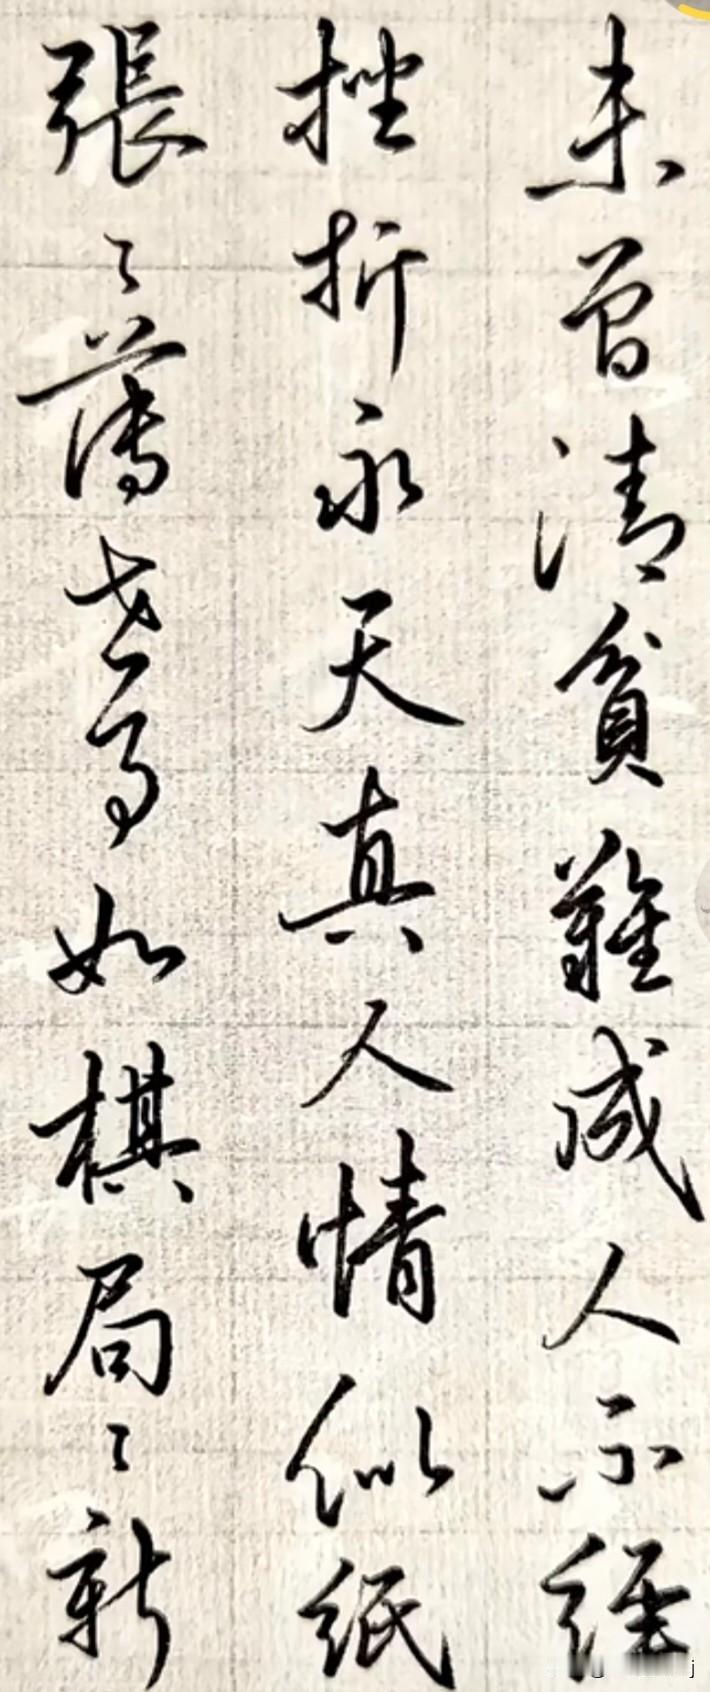 未曾清貧難成人不經
挫折永天真人情似紙
張〻薄世事如棋局〻新